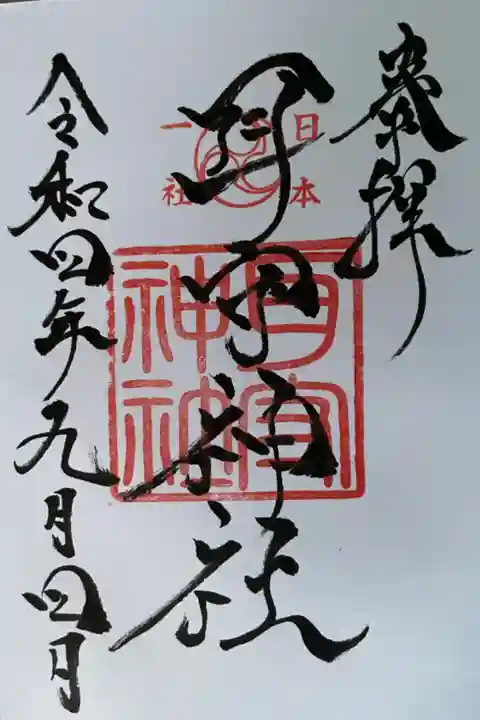 奉拝
日本
一社
耳守神社
耳守
神社
令和四年九月四日